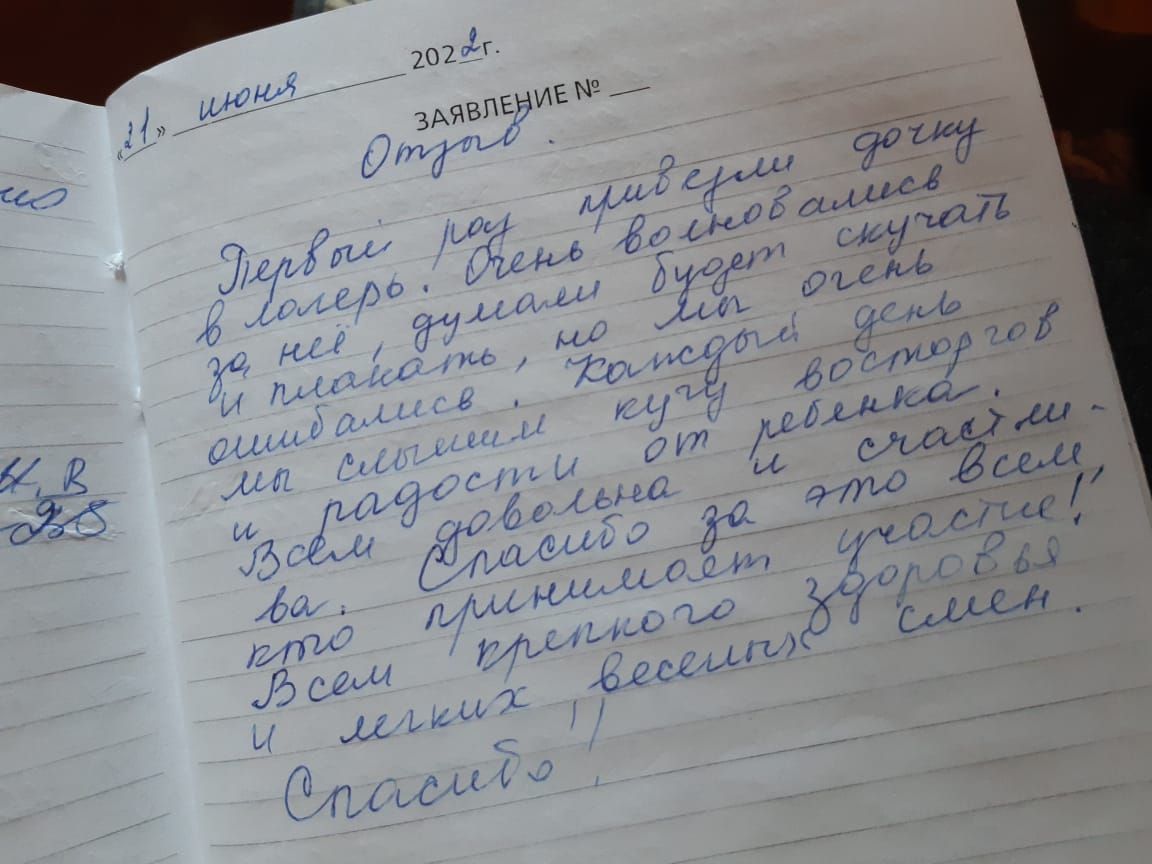 «21» июня 2022г.
ЗАЯВЛЕНИЕ № __
Отзыв.
Первый раз привезли дочку
в лагерь. Очень волновались
за неё, думали будет скучать
и плакать, но мы очень
ошибались. Каждый день
мы слышим кучу восторгов
и радости от ребенка.
Всем довольна и счастли-
ва. Спасибо за это всем,
кто принимает участие!
Всем крепкого здоровья
и легких веселых смен.
Спасибо!!
И. В